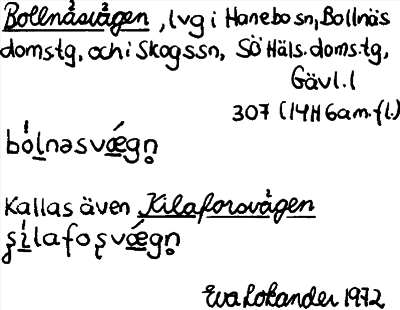 Bollnäsvägen, lvg i Hanebo sn, Bollnäs
domstg, och i Skogssn, SÖ Häls. doms.tg,
Gävl. l
307 (14H 6am.fl.)
bólnasvǽgn̥
Kallas även Kilaforsvägen
ʂílafoʂvǽgn̥
Eva Lokander 1972